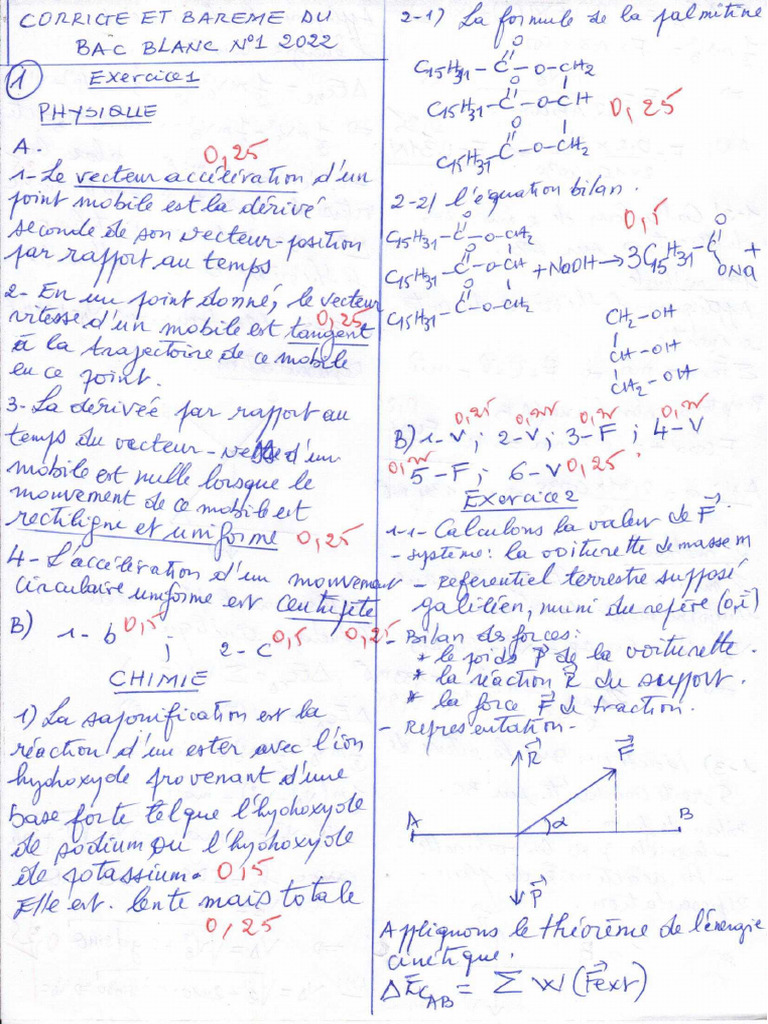 CORRIGE ET BAREME DU
BAC BLANC N°1 2022
1 Exercice 1
PHYSIQUE
A.
0,25
1- Le vecteur accélération d'un
point mobile est la dérivé
seconde de son vecteur-position
par rapport au temps
2- En un point donné, le vecteur
vitesse d'un mobile est tangent 0,25
à la trajectoire de ce mobile
en ce point.
3- La dérivée par rapport au
temps du vecteur- d'un
mobile est nulle lorsque le
mouvement de ce mobile est
rectiligne et uniforme 0,25
4- L'accélération d'un mouvement
circulaire uniforme est centripète
0,25
B) 1- b 0,5 ; 2- c 0,5
CHIMIE
1) La saponification est la
réaction d'un ester avec l'ion
hydroxyde provenant d'une
base forte tel que l'hydroxyde
de sodium ou l'hydroxyde
de potassium. 0,5
Elle est lente mais totale
0,25
2-1) La formule de la palmitine
O
C15H31 - C - O - CH2
O
C15H31 - C - O - CH 0,25
O
C15H31 - C - O - CH2
2-2) l'équation bilan.
O 0,5
C15H31 - C - O - CH2
O
C15H31 - C - O - CH + NaOH → 3 C15H31 - C O ONa +
O
C15H31 - C - O - CH2
CH2 - OH
CH - OH
CH2 - OH
0,25 0,25 0,25 0,25
B) 1-V ; 2-V ; 3-F ; 4-V
0,25 5-F ; 6-V 0,25
Exercice 2
1-1- Calculons la valeur de F
- système : la voiturette de masse m
- referentiel terrestre supposé
galiléen, muni du repère (O,i)
- Bilan des forces :
* le poids P de la voiturette.
* la réaction R du support.
* la force F de traction.
- Représentation-
R F
A α B
P
Appliquons le théorème de l'énergie
cinétique.
ΔEc AB = Σ W (Fext)